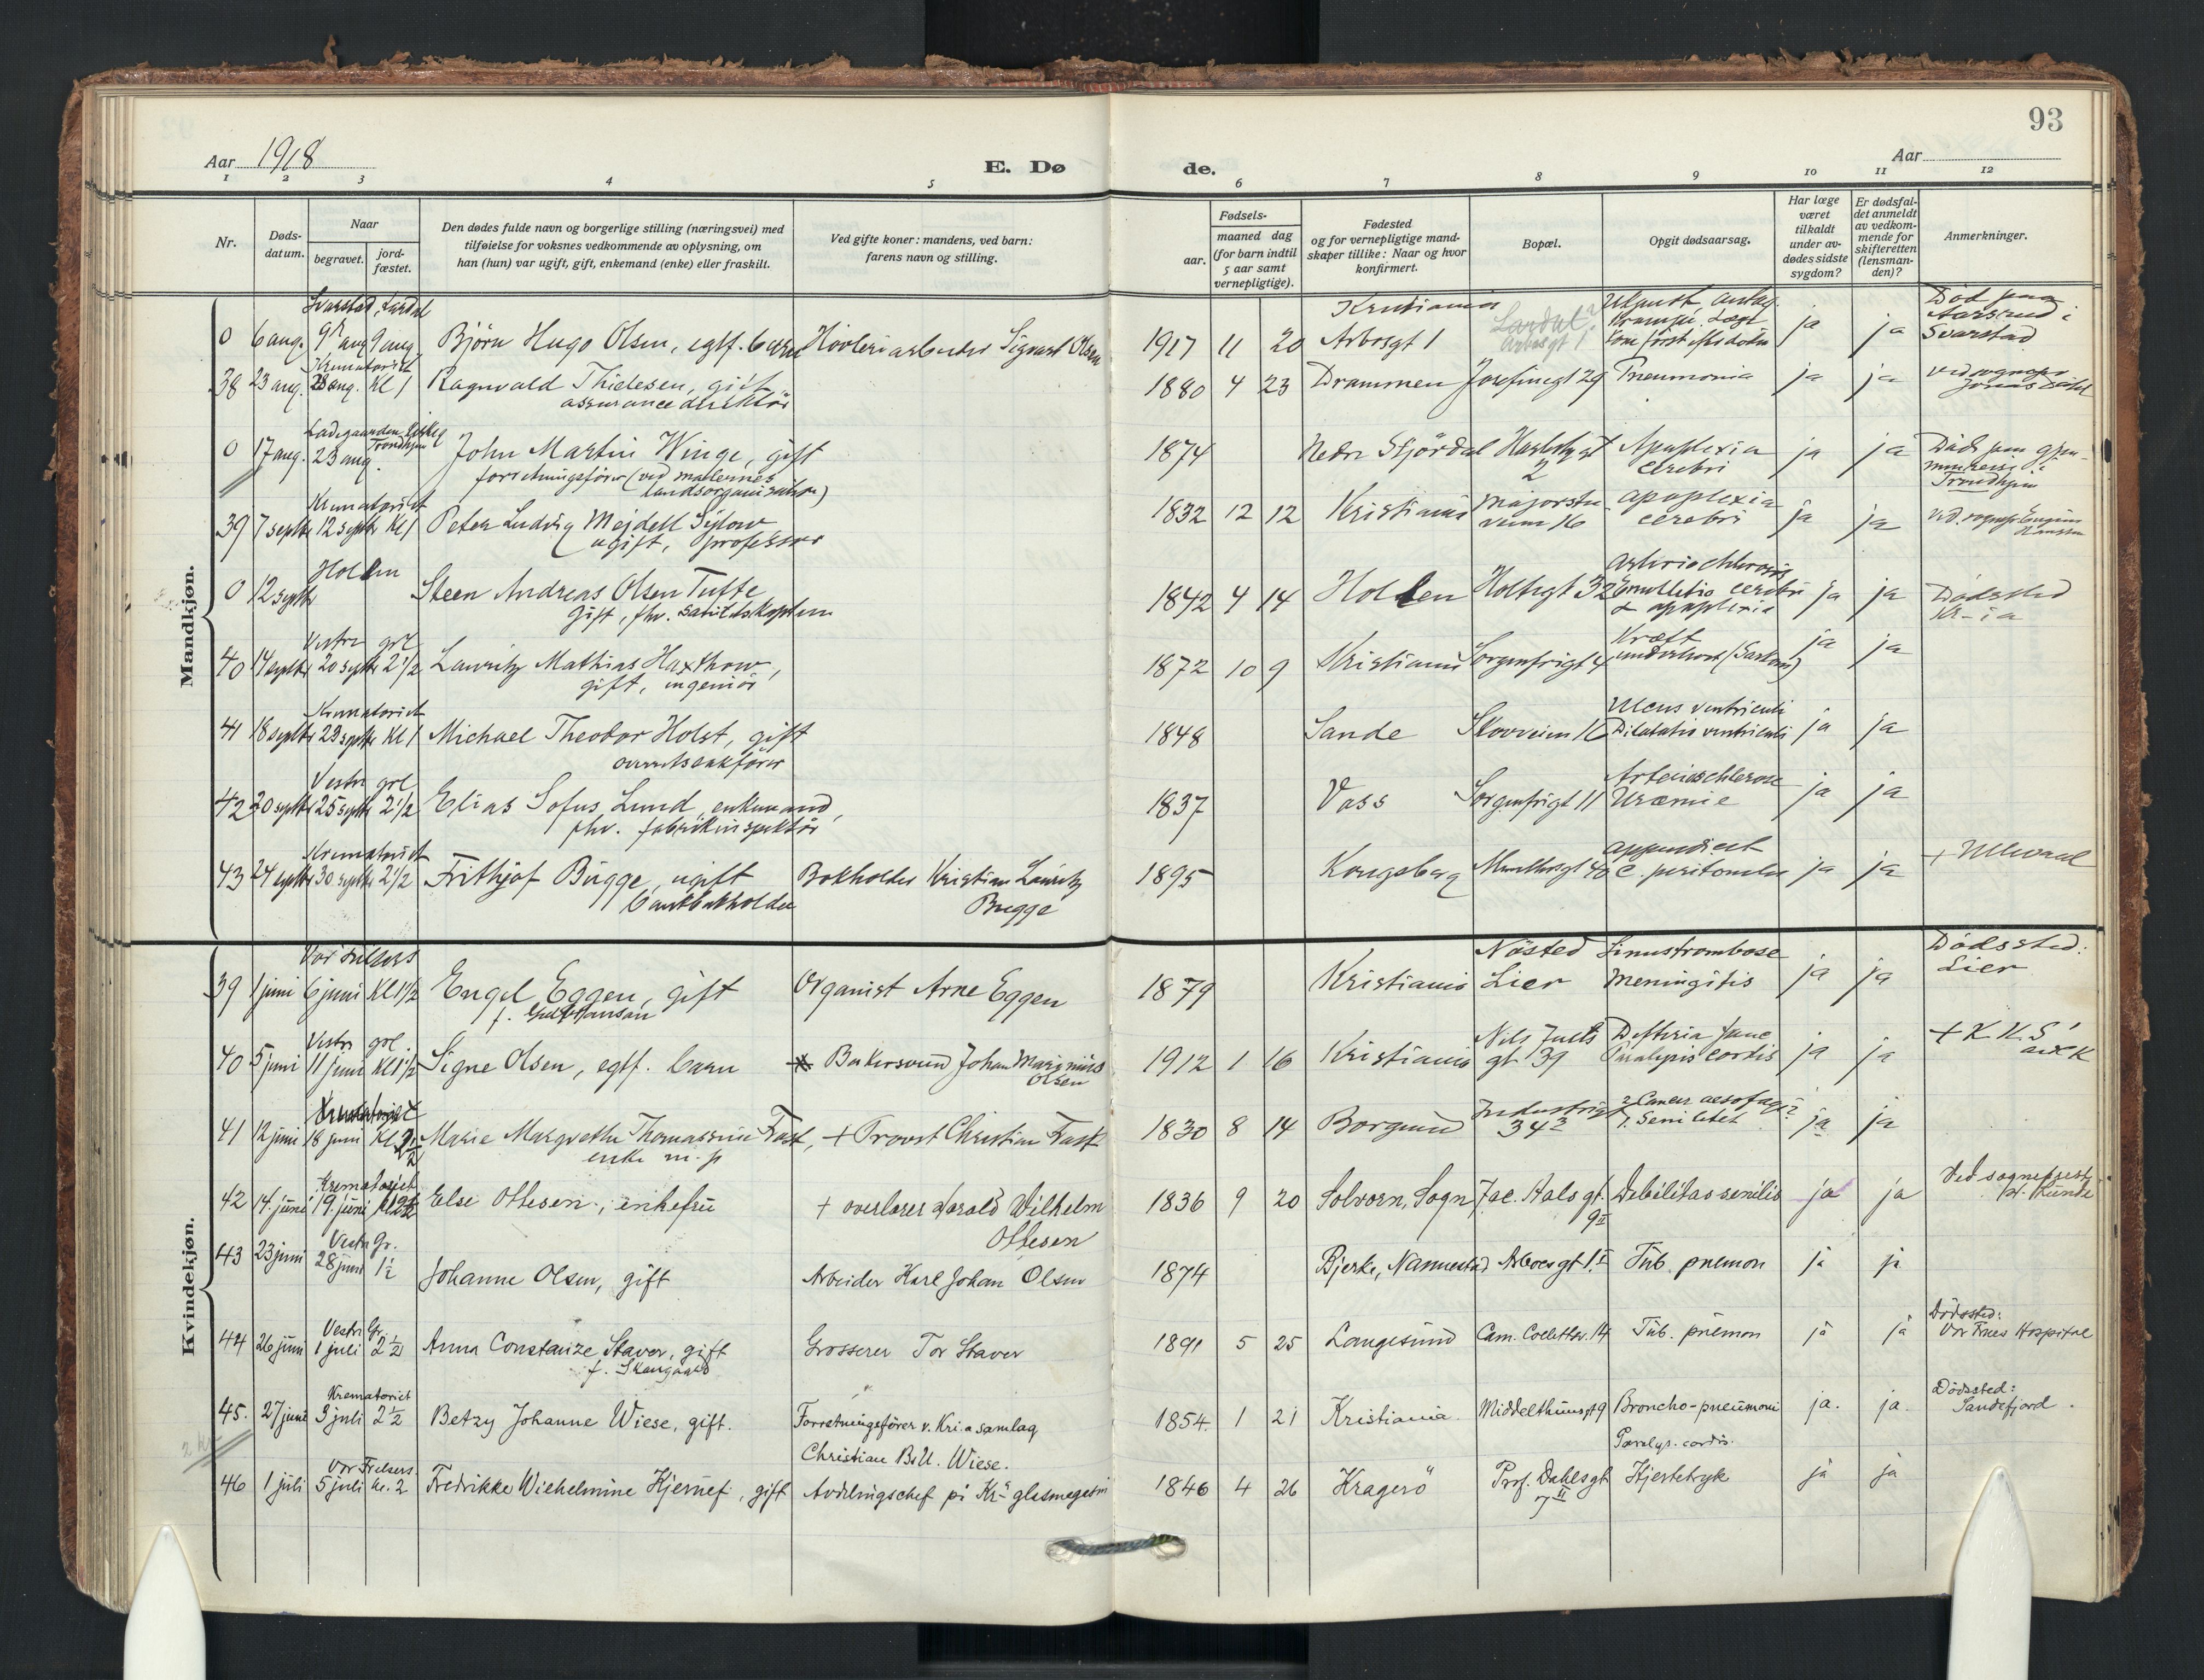 93
Aar 1918
E. Dø de.
Aar
1 2 3 4 5 6 7 8 9 10 11 12
Nr.
Døds-
datum.
Naar
begravet.
jord-
fæstet.
Den dødes fulde navn og borgerlige stilling (næringsvei) med
tilføielse for voksnes vedkommende av oplysning, om
han (hun) var ugift, gift, enkemand (enke) eller fraskill.
Ved gifte koner: mandens, ved barn:
farens navn og stilling.
Fødsels-
aar.
maaned dag
(for barn indtil
5 aar samt
vernepligtige).
Fødested
og for vernepligtige mand-
skaper tillike: Naar og hvor
konfirmert.
Bopæl.
Opgit dødsaarsag.
Har læge
været
tilkaldt
under av-
dødes sidste
sygdom?
Er dødsfal-
det anmeldt
av vedkom-
mende for
skifteretten
(lensman-
den)?
Anmerkninger.
Mandkjøn.
Svarstad, Lardal
Kristiania
0 6 aug. 9 aug 9 aug Bjørn Hugo Olsen, egtf. barn Høvleriarbeider Sigvart Olsen 1917 11 20 Arbosgt 1 Lardal ja ja Svarstad
Krematoriet
38 23 aug. 28 aug. Kl 1 Ragnvald Thielesen, gift 1880 4 23 Drammen Josefinegt 29 Pneumonia ja ja
assurancedirektör
Ladegaarden Kirkeg
Trondhjem
0 17 aug. 23 aug. John Martin Winge, gift 1874 Nedre Stjördal 2 Apoplexia cerebri ja ja
forretningsförer (ved malernes
landsorganisation)
Trondhjem
Krematoriet
39 7 septbr 12 septbr Kl 1 Peter Ludvig Mejdell Sylow 1832 12 12 Kristiania Majorstu-
veien 16 apoplexia cerebri ja ja
ugift, professor
Holden
0 12 septbr Steen Andreas Olsen Tufte 1842 4 14 Holden Holtegt 32 ja ja Dödssted
Kr-ia
gift, fhv.
& apoplexia
Vestre grl
40 14 septbr 20 septbr 2 1/2 Lauritz Mathias Haxthow, 1872 10 9 Kristiania Sorgenfrigt 4 Kræft ja ja
gift, ingeniör
Krematoriet
41 18 septbr 23 septbr Kl 1 Michael Theodor Holst, gift 1848 Sande Skovveien 16 Ulcus ventriculi
Dilatatio ventriculi ja ja
overretssakförer
Vestre grl
42 20 septbr 25 septbr 2 1/2 Elias Sofus Lund, enkemand, 1837 Voss Sorgenfrigt 11 Arteriosclerose
Uræmie ja ja
fhv. fabrikinspektör
Krematoriet
43 24 septbr 30 septbr 2 1/2 Frithjof Bugge, ugift Bokholder Kristian Lauritz
Bugge 1895 Kongsberg Munthesgt 40 appendicit
c. peritonitis ja ja + Ullevaal
bankbokholder
Kvindekjøn.
Vor Frelsers
39 1 juni 6 juni Kl 1 1/2 Engel Eggen, gift Organist Arne Eggen 1879 Kristiania Nösted
Lier Sinustrombose
Meningitis ja ja Dödssted:
Lier
Vestre grl.
40 5 juni 11 juni Kl 1 1/2 Signe Olsen, egtf. barn Bakersvend Johan Marinius
Olsen 1912 1 16 Kristiania Nils Juels
gt 39 Difteria
Paralysis cordis ja ja + K.K.S
Krematoriet
41 12 juni 18 juni Kl 2 1/2 Marie Margrethe Thomassine Fask, + Provst Christian Fask 1830 8 14 Borgund Industrigt
34 2 Cancer aesofagi?
1. Senilitet ja ja
enke
Krematoriet
42 14. juni 19. juni Kl 2 1/2 Else Ottesen, enkefru + overlærer Harald Wilhelm
Ottesen 1836 9 20 Solvorn, Sogn Jac. Aals gt.
9 II Debilitas senilis ja ja Ved sogneprest
Vestre Gr.
43 23 juni 28 juni 1 1/2 Johanne Olsen, gift Arbeider Karl Johan Olsen 1874 Bjerke, Nannestad Arboesgt 1 I Tub. pnemon ja ja
Vestre Gr.
44 26 juni 1 juli 2 1/2 Anna Constanze Staver, gift Grosserer Tor Staver 1891 5 25 Langesund Cam. Colletts v. 14 Tub. pnemon ja ja Dödssted:
Vor Frues Hospital
Krematoriet
45. 27 juni 3 juli 2 1/2 Betzy Johanne Wiese, gift. Forretningsförer v. Kri.a samlag
Christian B.U. Wiese. 1854. 1 21 Kristiania Middelthunsgt 9 Broncho-pneumoni
Paralys. cordis. ja. ja. Dödssted:
Sandefjord.
Vor Frelsers
46 1 juli 5 juli kl. 2 Fredrikke Wilhelmine Hjernef, gift Avdelingschef på Kr.a glasmagasin 1846 4 26 Kragerö Prof. Dahls gt
7 II Hjertetryk ja ja